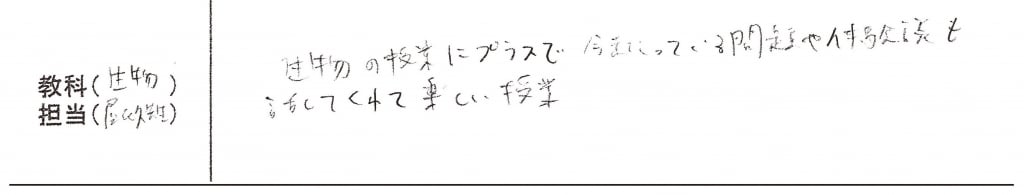 生物の授業にプラスで 今起こっている問題や体験談も
教科(生物)
話してくれて楽しい授業
担当(屋久